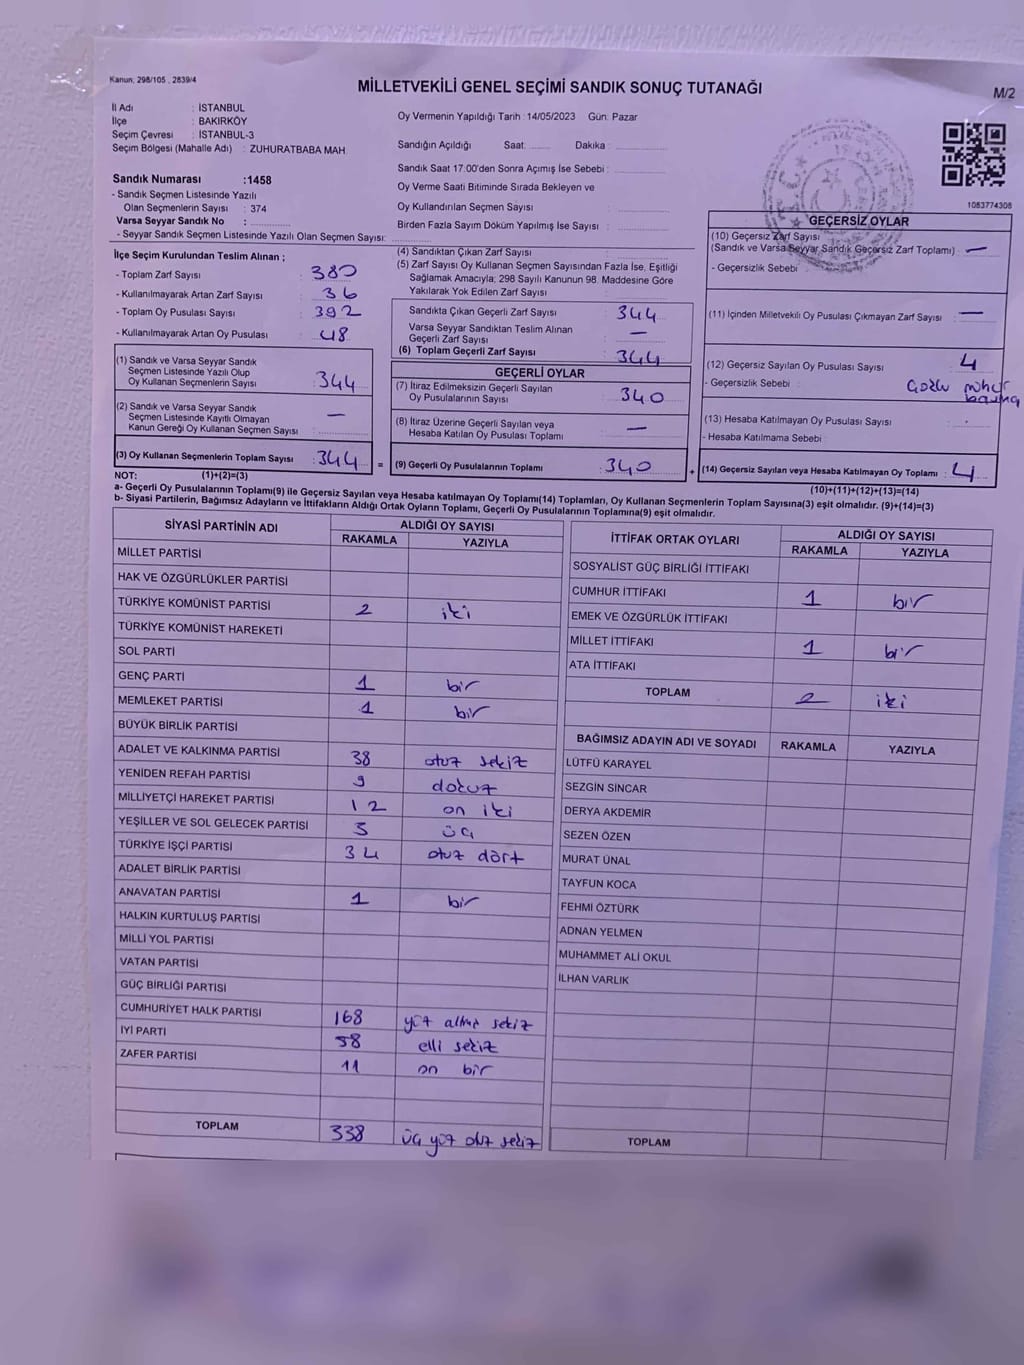 Kanun: 298/105 , 2839/4
MİLLETVEKİLİ GENEL SEÇİMİ SANDIK SONUÇ TUTANAĞI
M/2
İl Adı : İSTANBUL
İlçe : BAKIRKÖY
Seçim Çevresi : İSTANBUL-3
Seçim Bölgesi (Mahalle Adı) : ZUHURATBABA MAH.
Sandık Numarası :1458
- Sandık Seçmen Listesinde Yazılı
Olan Seçmenlerin Sayısı : 374
Varsa Seyyar Sandık No :
- Seyyar Sandık Seçmen Listesinde Yazılı Olan Seçmen Sayısı:
Oy Vermenin Yapıldığı Tarih : 14/05/2023 Gün: Pazar
Sandığın Açıldığı Saat: Dakika :
Sandık Saat 17:00'den Sonra Açımış İse Sebebi :
Oy Verme Saati Bitiminde Sırada Bekleyen ve
Oy Kullandırılan Seçmen Sayısı :
Birden Fazla Sayım Döküm Yapılmış İse Sayısı :
1083774308
İlçe Seçim Kurulundan Teslim Alınan ;
- Toplam Zarf Sayısı : 380
- Kullanılmayarak Artan Zarf Sayısı : 36
- Toplam Oy Pusulası Sayısı : 392
- Kullanılmayarak Artan Oy Pusulası : 48
(1) Sandık ve Varsa Seyyar Sandık
Seçmen Listesinde Yazılı Olup
Oy Kullanan Seçmenlerin Sayısı : 344
(2) Sandık ve Varsa Seyyar Sandık
Seçmen Listesinde Kayıtlı Olmayan
Kanun Gereği Oy Kullanan Seçmen Sayısı : —
(3) Oy Kullanan Seçmenlerin Toplam Sayısı : 344
(1)+(2)=(3)
(4) Sandıktan Çıkan Zarf Sayısı :
(5) Zarf Sayısı Oy Kullanan Seçmen Sayısından Fazla İse, Eşitliği
Sağlamak Amacıyla; 298 Sayılı Kanunun 98. Maddesine Göre
Yakılarak Yok Edilen Zarf Sayısı :
Sandıkta Çıkan Geçerli Zarf Sayısı : 344
Varsa Seyyar Sandıktan Teslim Alınan
Geçerli Zarf Sayısı : —
(6) Toplam Geçerli Zarf Sayısı : 344
GEÇERLİ OYLAR
(7) İtiraz Edilmeksizin Geçerli Sayılan
Oy Pusulalarının Sayısı : 340
(8) İtiraz Üzerine Geçerli Sayılan veya
Hesaba Katılan Oy Pusulası Toplamı : —
= (9) Geçerli Oy Pusulalarının Toplamı : 340
GEÇERSİZ OYLAR
(10) Geçersiz Zarf Sayısı
(Sandık ve Varsa Seyyar Sandık Geçersiz Zarf Toplamı) : —
- Geçersizlik Sebebi :
(11) İçinden Milletvekili Oy Pusulası Çıkmayan Zarf Sayısı : —
(12) Geçersiz Sayılan Oy Pusulası Sayısı : 4
- Geçersizlik Sebebi : mühür
(13) Hesaba Katılmayan Oy Pusulası Sayısı :
- Hesaba Katılmama Sebebi :
+ (14) Geçersiz Sayılan veya Hesaba Katılmayan Oy Toplamı : 4
(10)+(11)+(12)+(13)=(14)
NOT:
a- Geçerli Oy Pusulalarının Toplamı(9) ile Geçersiz Sayılan veya Hesaba katılmayan Oy Toplamı(14) Toplamları, Oy Kullanan Seçmenlerin Toplam Sayısına(3) eşit olmalıdır. (9)+(14)=(3)
b- Siyasi Partilerin, Bağımsız Adayların ve İttifakların Aldığı Ortak Oyların Toplamı, Geçerli Oy Pusulalarının Toplamına(9) eşit olmalıdır.
SİYASİ PARTİNİN ADI ALDIĞI OY SAYISI
RAKAMLA YAZIYLA
MİLLET PARTİSİ
HAK VE ÖZGÜRLÜKLER PARTİSİ
TÜRKİYE KOMÜNİST PARTİSİ 2 iki
TÜRKİYE KOMÜNİST HAREKETİ
SOL PARTİ
GENÇ PARTİ 1 bir
MEMLEKET PARTİSİ 1 bir
BÜYÜK BİRLİK PARTİSİ
ADALET VE KALKINMA PARTİSİ 38 otuz sekiz
YENİDEN REFAH PARTİSİ 9 dokuz
MİLLİYETÇİ HAREKET PARTİSİ 12 on iki
YEŞİLLER VE SOL GELECEK PARTİSİ 3 üç
TÜRKİYE İŞÇİ PARTİSİ 34 otuz dört
ADALET BİRLİK PARTİSİ
ANAVATAN PARTİSİ 1 bir
HALKIN KURTULUŞ PARTİSİ
MİLLİ YOL PARTİSİ
VATAN PARTİSİ
GÜÇ BİRLİĞİ PARTİSİ
CUMHURİYET HALK PARTİSİ 168 yüz altmış sekiz
İYİ PARTİ 58 elli sekiz
ZAFER PARTİSİ 11 on bir
TOPLAM 338 üç yüz otuz sekiz
İTTİFAK ORTAK OYLARI ALDIĞI OY SAYISI
RAKAMLA YAZIYLA
SOSYALİST GÜÇ BİRLİĞİ İTTİFAKI
CUMHUR İTTİFAKI 1 bir
EMEK VE ÖZGÜRLÜK İTTİFAKI
MİLLET İTTİFAKI 1 bir
ATA İTTİFAKI
TOPLAM 2 iki
BAĞIMSIZ ADAYIN ADI VE SOYADI RAKAMLA YAZIYLA
LÜTFÜ KARAYEL
SEZGİN SİNCAR
DERYA AKDEMİR
SEZEN ÖZEN
MURAT ÜNAL
TAYFUN KOCA
FEHMİ ÖZTÜRK
ADNAN YELMEN
MUHAMMET ALİ OKUL
İLHAN VARLIK
TOPLAM